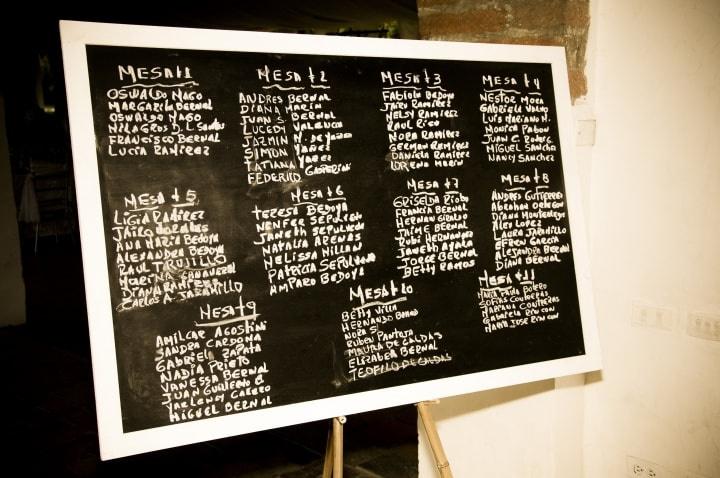 MESA #1
OSWALDO NAGO
MARGARITA BERNAL
OSWALDO NAGO
MILAGROS D.L. Santos
FRANCISCO BERNAL
LUCIA RAMIREZ
MESA #2
ANDRES BERNAL
DIANA MARIN
JUAN S BERNAL
LUCEDY VALENCIA
JAZMIN
SIMON YAÑEZ
TATIANA
FEDERICO GASPERINI
MESA #3
FABIOLA BEDOYA
JAIRO RAMIREZ
NELSY RAMIREZ
RAUL RICO
NORA RAMIREZ
GERMAN RAMIREZ
DANIELA RAMIREZ
LORENA MARIN
MESA #4
NESTOR MORA
GABRIELA
LUIS MARIANO N.
MONICA PABON
JUAN C
MIGUEL SANCHEZ
NANCY SANCHEZ
MESA #5
LIGIA RAMIREZ
JAIRO MORALES
ANA MARIA BEDOYA
ALEXANDRA BEDOYA
RAUL TRUJILLO
MARINA CANAVERAL
DIANA RAMIREZ
CARLOS A. JARAMILLO
MESA #6
TERESA BEDOYA
SEPULVEDA
JANETH SEPULVEDA
NATALIA ARENAS
MELISSA MILLAN
PATRICIA SEPULVEDA
AMPARO BEDOYA
MESA #7
GRISELDA
FRANCIA BERNAL
HERNAN GIRALDO
JAIME BERNAL
RUBI HERNANDEZ
JANETH AYALA
JORGE BERNAL
BETTY RAMOS
MESA #8
ANDRES GUTIERREZ
ABRAHAM
DIANA MONTENEGRO
ALEX LOPEZ
LAURA JARAMILLO
EFREN GARCIA
ALEJANDRA BERNAL
DIANA BERNAL
MESA #9
AMILCAR AGOSTINI
SANDRA CARDONA
GABRIELA ZAPATA
NADIA PRIETO
VANESSA BERNAL
JUAN GUILLERMO
YARLENY
MIGUEL BERNAL
MESA #10
BETTY VILLA
HERNANDO
NORA S
RUBEN PANTOJA
MAURA DE CALDAS
ELIZABETH BERNAL
TEOFILO DE CALDAS
MESA #11
MARIA PAULA BOTERO
SOFIA CONTRERAS
MARIANA CONTRERAS
GABRIELA RINCON
MARIA JOSE RINCON